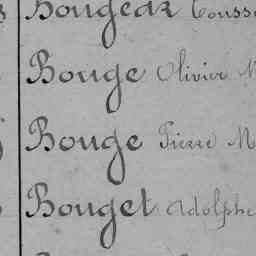 Bougear Touss
Bouge Olivier M
Bouge Pierre M
Bouget Adolphe